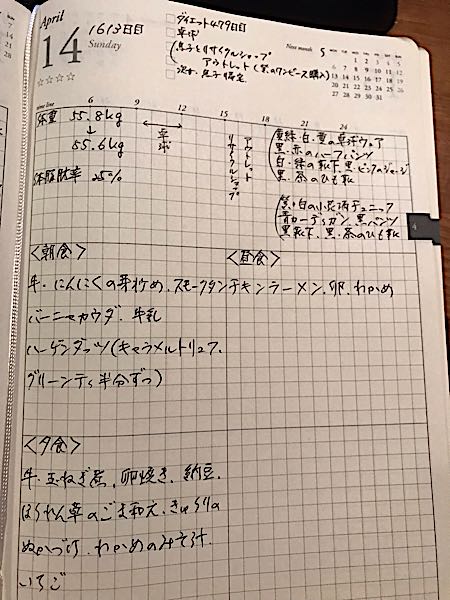 April
14
Sunday
1613日目
ダイエット479日目
卓球
息子とリサイクルショップ
アウトレット(紫のワンピース購入)
次女、息子帰宅
Next month 5
time line 6 9 12 15 18 21 24
体重 55.8kg
↓
55.6kg
体脂肪率 25%
卓球
リサイクルショップ
アウトレット
黄緑・白・
黒・赤のハーフパンツ
白・緑の靴下、黒・ピンクのジャージ
黒・茶のひも靴
紫・白の小花柄チュニック
青カーディガン、黒パンツ
黒靴下、黒・茶のひも靴
4
<朝食>
牛・にんにくの芽炒め、スモークタン
バーニャカウダ、牛乳
ハーゲンダッツ(キャラメルトリュフ、
グリーンティ半分ずつ)
<昼食>
チキンラーメン、卵、わかめ
<夕食>
牛・玉ねぎ煮、卵焼き、納豆、
ほうれん草のごま和え、きゅうりの
ぬかづけ、わかめのみそ汁、
いちご